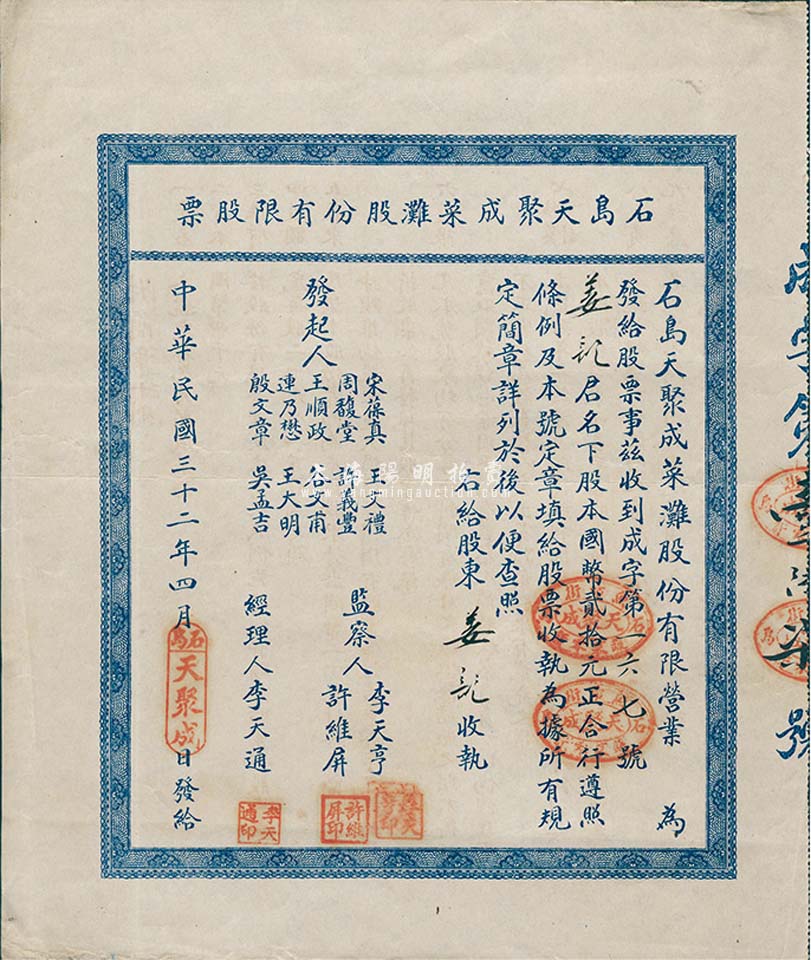 石島天聚成菜灘股份有限股票
石島天聚成菜灘股份有限營業 為
發給股票事茲收到成字第一六七號
姜記君名下股本國幣貳拾元正合行遵照
條例及本號定章填給股票收執為據所有規
定簡章詳列於後以便查照
右給股東 姜記 收執
發起人
宋葆真 王文禮
周馥堂 許義豐
王順政 谷文甫
連乃懋 王大明
殷文章 吳孟吉
監察人 李天亨
許維屏
經理人 李天通
中華民國三十二年四月 日發給
石島
天聚成
許維屏印
李天通印
成字第
號
www.yangmingauction.com